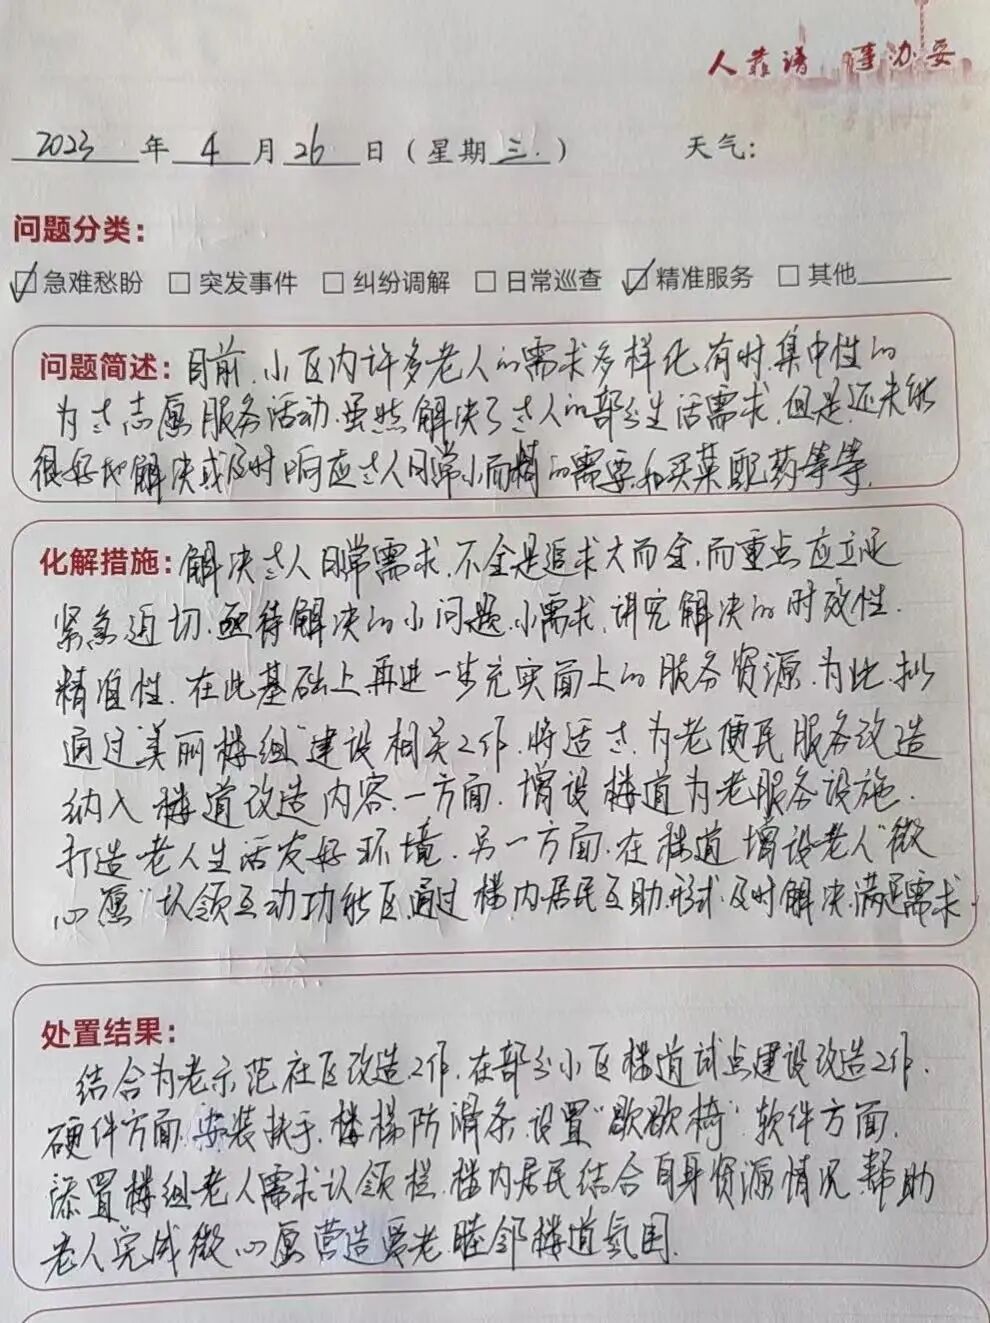 人靠谱 事办妥
2023年4月26日(星期三.) 天气:
问题分类:
☑急难愁盼 □突发事件 □纠纷调解 □日常巡查 ☑精准服务 □其他
问题简述:目前,小区内许多老人的需求多样化,有时,集中性的
为老志愿服务活动,虽然解决了老人的部分生活需求,但是,还未能
很好地解决或及时响应老人日常小而精的需要,和买菜配药等等,
化解措施:解决老人日常需求,不全是追求大而全,而重点应立足
紧急迫切,亟待解决的小问题,小需求,讲究解决的时效性,
精准性,在此基础上再进一步充实面上的服务资源,为此,拟
通过"美丽楼组"建设相关工作,将适老,为老便民服务改造
纳入楼道改造内容,一方面,增设楼道为老服务设施,
打造老人生活友好环境,另一方面,在楼道增设老人"微
心愿"认领互动功能区,通过楼内居民互助形式,及时解决,满足需求.
处置结果:
结合为老示范社区改造工作,在部分小区楼道试点建设改造工作,
硬件方面,安装扶手,楼梯防滑条,设置"歇歇椅",软件方面,
添置楼组老人需求认领栏,楼内居民结合自身资源情况,帮助
老人完成微心愿,营造爱老睦邻楼道氛围.